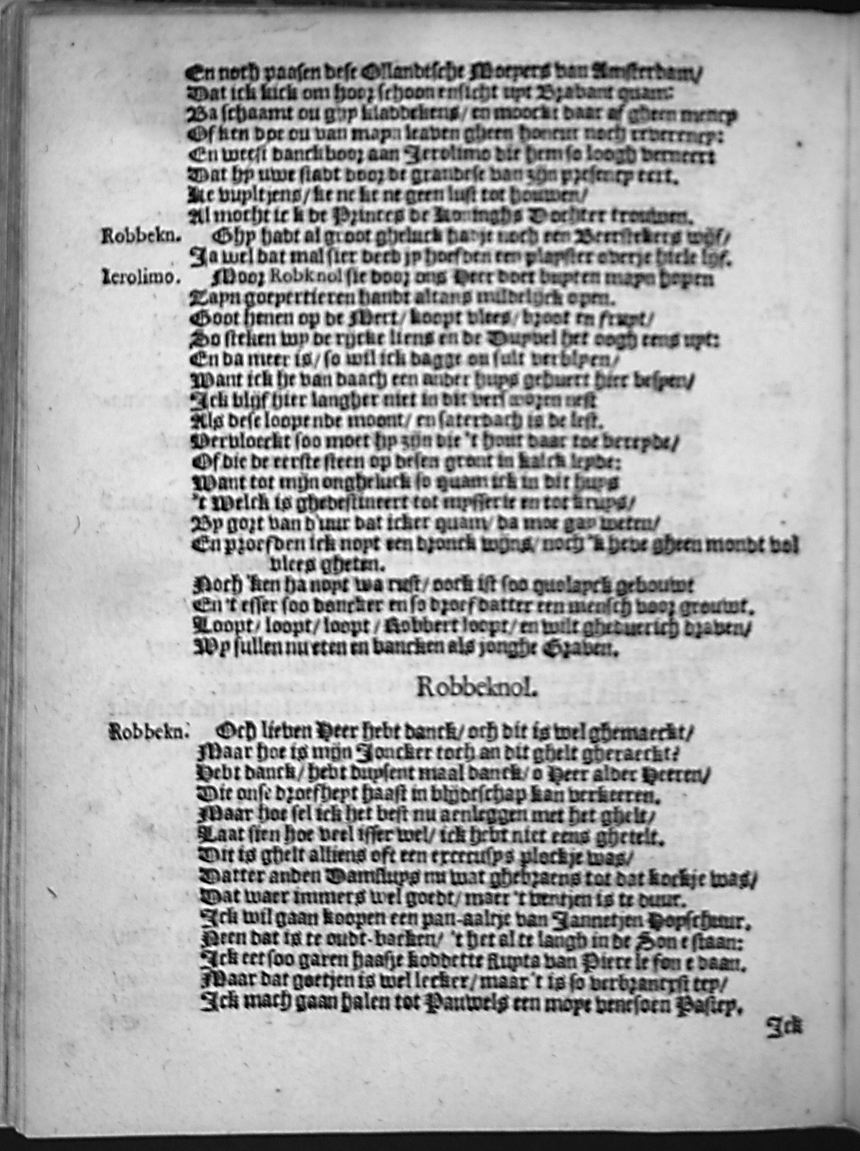 En noch paasen dese Ollandtsche Moepers van Amsterdam/
Dat ick kick om hoor schoon ensicht uyt Brabant quam:
Ba schaamt ou guy kladdekens/ en moockt daar af gheen meney
Of ken doe ou van mayn leaven gheen honeur noch reverency:
En weest danckboor aan Jerolimo die hem so loogh verneert
Dat hy uwe stadt door de grandese van zijn presency eert.
Ke vuyltjens/ ke ne ke ne geen lust tot houwen/
Al mocht ick de Princes de Koninghs Dochter trouwen.
Robbekn. Ghy hadt al groot gheluck hadje noch een Beerstekers wijf/
Ja wel dat mal sier deed jy hoefden een playster overje hiele lijf.
Ierolimo. Moor Robknol sie door ons Heer doet buyten mayn hopen
Zayn goepertieren handt altans mildelijck open.
Goot henen op de Mert/ koopt vlees/ broot en fruyt/
So steken wy de rijcke liens en de Duyvel het oogh eens uyt:
En da meer is/ so wil ick dagge ou sult verblyen/
Want ick he van daach een ander huys gehuert hier besyen/
Ick blijf hier langher niet in dit verswozen nest
Als dese loopende moont/ en saterdach is de lest.
Vervloeckt soo moet hy zijn die 't hout daar toe bereyde/
Of die de eerste steen op desen gront in kalck leyde:
Want tot mijn ongheluck so quam ick in dit huys
't Welck is ghedestineert tot mysserie en tot kruys/
By gort van d'uur dat icker quam/ da moe gay weten/
En proefden ick noyt een dronck wijns/ noch 'k hebe gheen mondt vol
vlees gheten.
Noch 'ken ha noyt wa rust/ oock ist soo qualayck gebouwt
En 't esser soo doncker en so droef datter een mensch voor grouwt.
Loopt/ loopt/ loopt/ Robbert loopt/ en wilt gheduerich draven/
Wy sullen nu eten en bancken als jonghe Graven.
Robbeknol.
Robbekn. Och lieven Heer hebt danck/ och dit is wel ghemaeckt/
Maar hoe is mijn Joncker toch an dit ghelt gheraeckt?
Hebt danck/ hebt duysent maal danck/ o Heer alder Heeren/
Die onse droefheyt haast in blijdeschap kan verkeeren.
Maar hoe sel ick het best nu aenleggen met het ghelt/
Laat sien hoe veel isser wel/ ick hebt niet eens ghetelt.
Dit is ghelt alliens oft een exccusys plockje was/
Datter anden Damsluys nu wat ghebraens tot dat kockje was/
Dat waer immers wel goedt/ maer 't ventjen is te duur.
Ick wil gaan koopen een pan-aaltje van Jannetjen Hopschuur.
Neen dat is te oudt-backen/ 't het al te langh in de Son e staan:
Ick eet soo garen haasje koddette sluyta van Piere le fon e daan.
Maar dat goetjen is wel lecker/ maar 't is so verbrancyst tey/
Ick mach gaan halen tot Pauwels een moye venesoen Pastey.
Ick